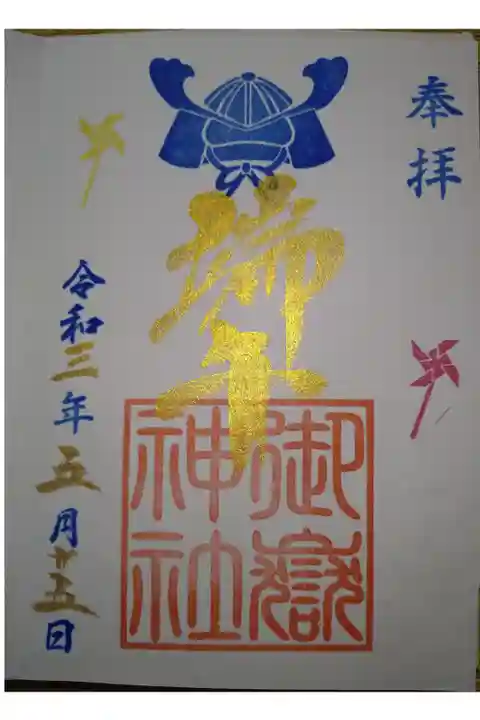 奉拝
端午
御嶽
神社
令和三年五月廿五日